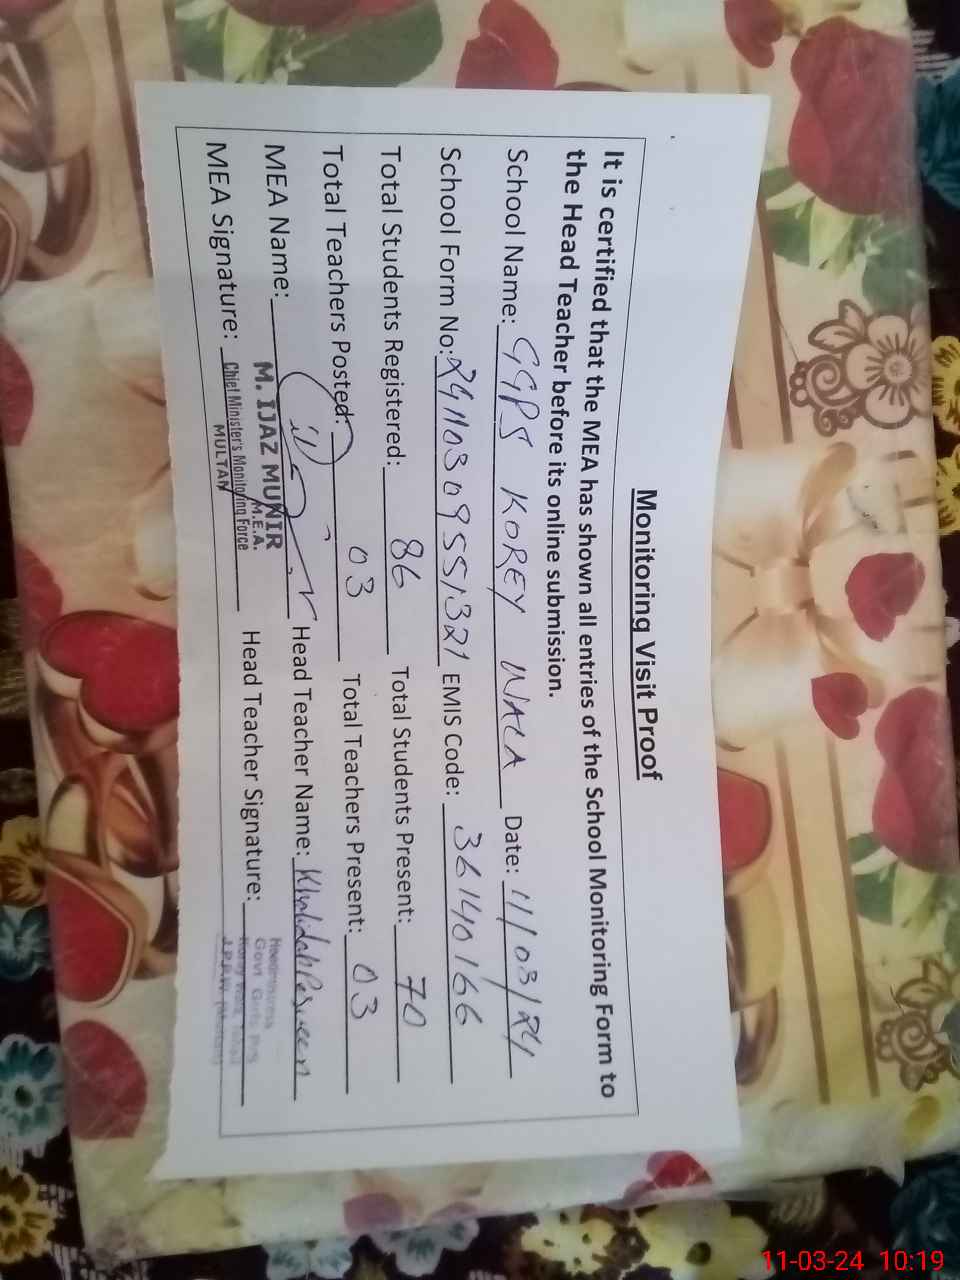 Monitoring Visit Proof
It is certified that the MEA has shown all entries of the School Monitoring Form to
the Head Teacher before its online submission.
School Name: GGPS KOREY WALA Date: 11/03/24
School Form No: 24110309551321 EMIS Code: 36140166
Total Students Registered: 86 Total Students Present: 70
Total Teachers Posted: 03 Total Teachers Present: 03
MEA Name: Head Teacher Name: Khalidah Perveen
M. IJAZ MUNIR
M.E.A.
MEA Signature: Chief Minister's Monitoring Force Head Teacher Signature:
MULTAN
Headmistress
Govt. Girls P/S
11-03-24 10:19